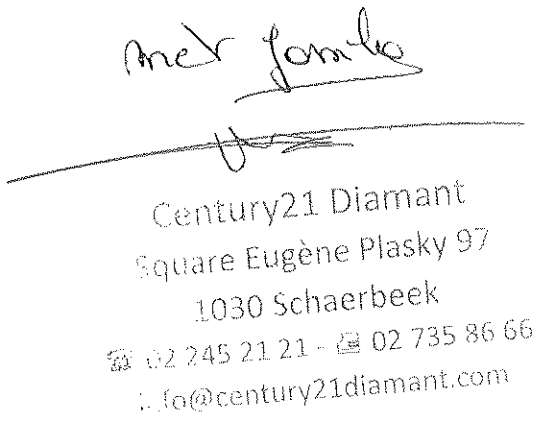 Century21 Diamant
Square Eugène Plasky 97
1030 Schaerbeek
☎ 02 245 21 21 - 📠 02 735 86 66
info@century21diamant.com